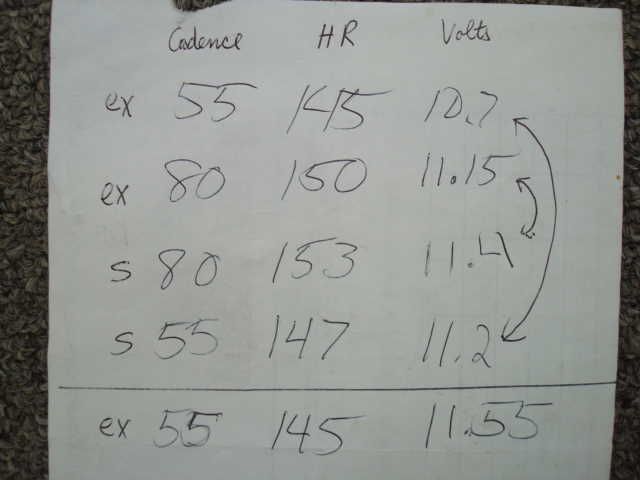 Cadence HR Volts
ex 55 145 10.7
ex 80 150 11.15
s 80 153 11.4
s 55 147 11.2
ex 55 145 11.55